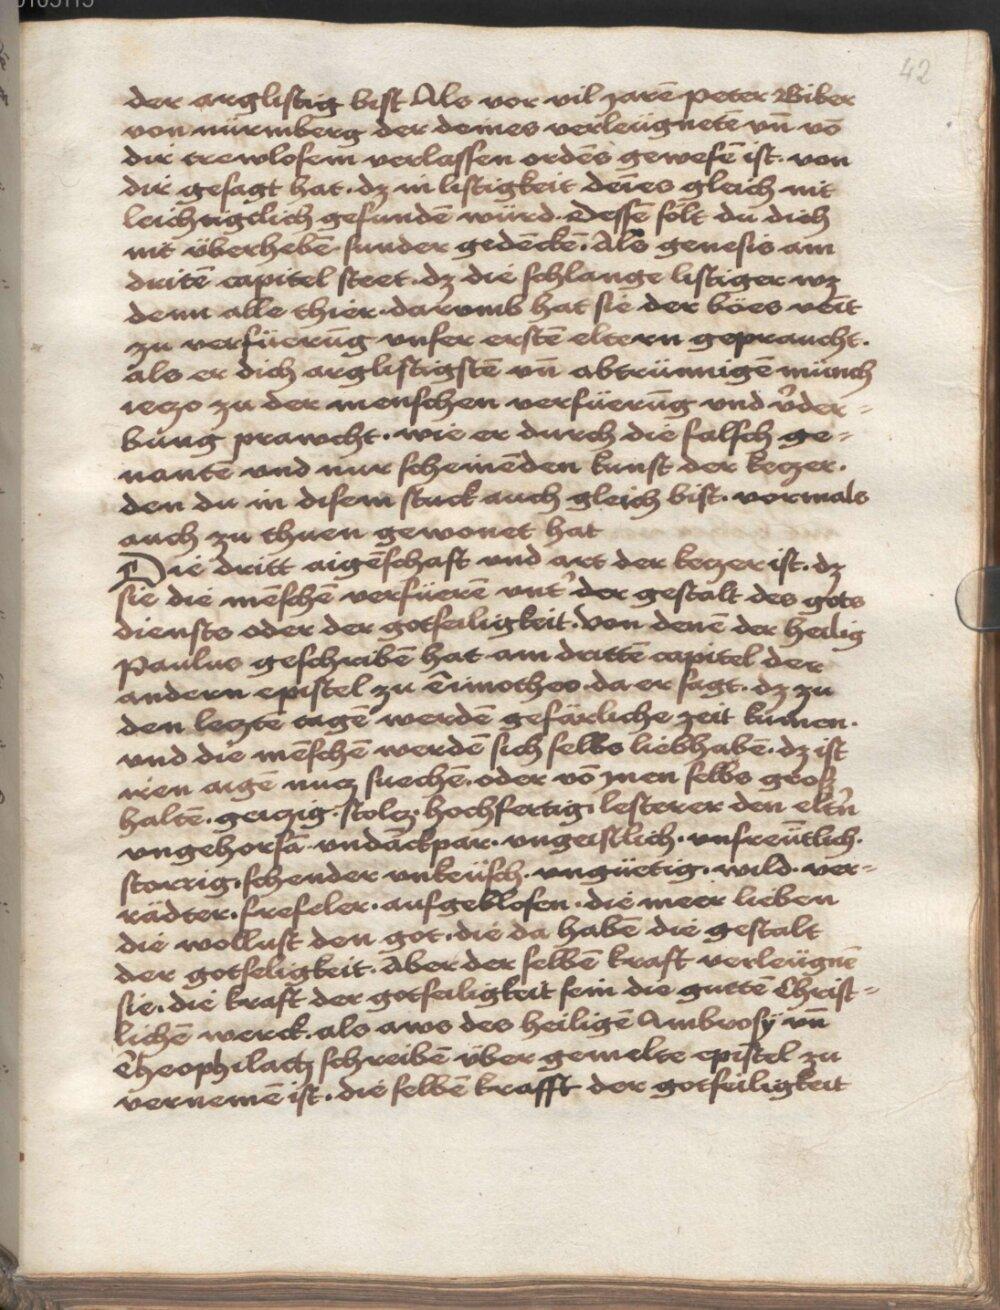 42
der arglistig bist Als vor vil jarē peter Biber
von nürmberg der deines verleügnetē vn̄ vō
dir trewlosem verlassen ordēs gewesē ist. von
dir gesagt hat. dz in listigkeit deīes gleich nit
leichtigclich gefundē würd. Dessē solt du dich
nit überhebē sunder gedēckē. Als genesis am
dritē capitel steet. dz die schlange listiger wz
denn alle thier. darumb hat sie der böes veīt
zu verfüerūg vnser erstē eltern gepraucht.
als er dich arglistigstē vn̄ abtrünnigē münch
ieczo zu der menschen verfüerūg und v̓der-
bung prawcht. wie er durch die falsch ge-
nantē und nur scheinēden kunst der keczer.
den du in disem stuck auch gleich bist. vormals
auch zu thuen gewonet hat
Die dritt aigēschaft vnd art der keczer ist. dz
sie die mēschē verfüerē vnt̓ der gestalt des gots
diensts oder der gotseiligkeit. von denē der heilig
Paulus geschribē hat am drittē capitel der
andern epistel zu Timotheo. da er sagt. dz zu
den leczte tagē werdē gefärliche zeit kumen.
vnd die mēschē werdē sich selbs liebhabē. dz ist
iren aigē nucz suechē. oder vō jnen selbs gros
haltē. geiczig. stolcz. hochfertig. lesterer den elt̓n
vngehorsā. vndāckpar. vngeistlich. vnfreūtlich.
storrig. schender vnkeüsch. vngüetig. wild. ver-
rädter. frefeler. aufgeblosen. die meer lieben
die wollust den got. die da habē die gestalt
der gotseligkeit. Aber der selbē kraft verleügnē
sie. die kraft der gotseiligkeit sein die guttē Christ-
lichē werck. als aws des heiligē Ambrosy vn̄
Theophilactj schreibē über gemelte epistel zu
vernemē ist. die selbē krafft der gotseiligkeit